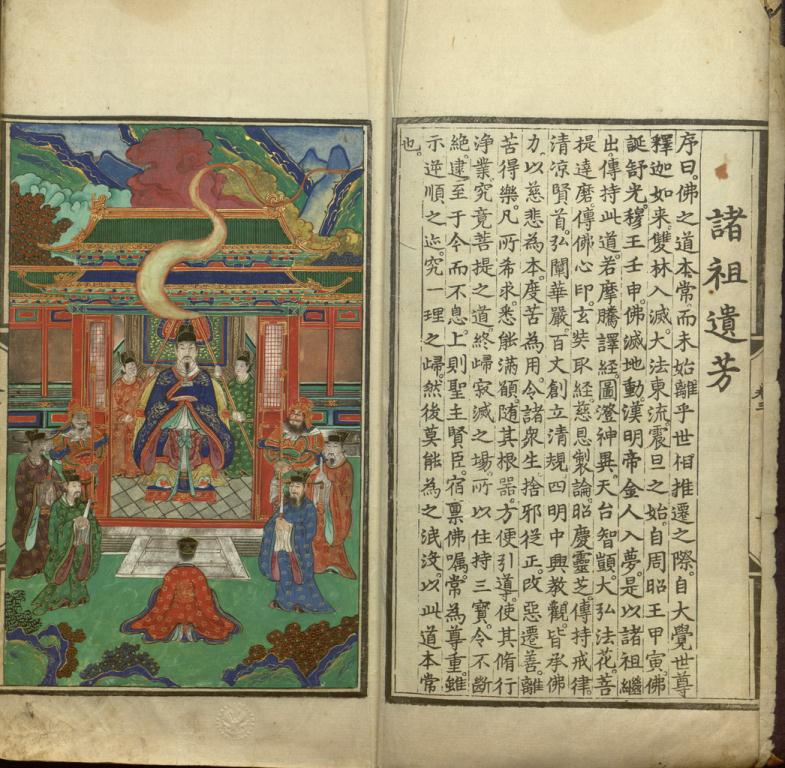 諸祖遺芳
序曰。佛之道本常而未始離乎世相推遷之際。自大覺世尊
釋迦如来。雙林入滅。大法東流。震旦之始。自周昭王甲寅。佛
誕舒光。穆王壬申。佛滅地動。漢明帝金人入夢。是以諸祖繼
出。傳持此道。若摩騰譯經。圖澄神異。天台智顗。大弘法花。菩
提達磨。傳佛心印。玄奘取經。慈恩製論。昭慶靈芝。傳持戒律。
清凉賢首。弘闡華嚴。百丈創立清規。四明中興教觀。皆承佛
力。以慈悲為本。度苦為用。令諸衆生捨邪從正。改惡遷善。離
苦得樂。凡所希求。悉能滿願。隨其根器。方便引導。使其脩行
淨業。究竟菩提之道。終歸寂滅之場。所以住持三寶。令不斷
絶。逮至于今而不息。上則聖主賢臣。宿禀佛嘱。常為尊重。雖
示逆順之迹。究一理之歸。然後莫能為之泯沒。以此道本常
也。